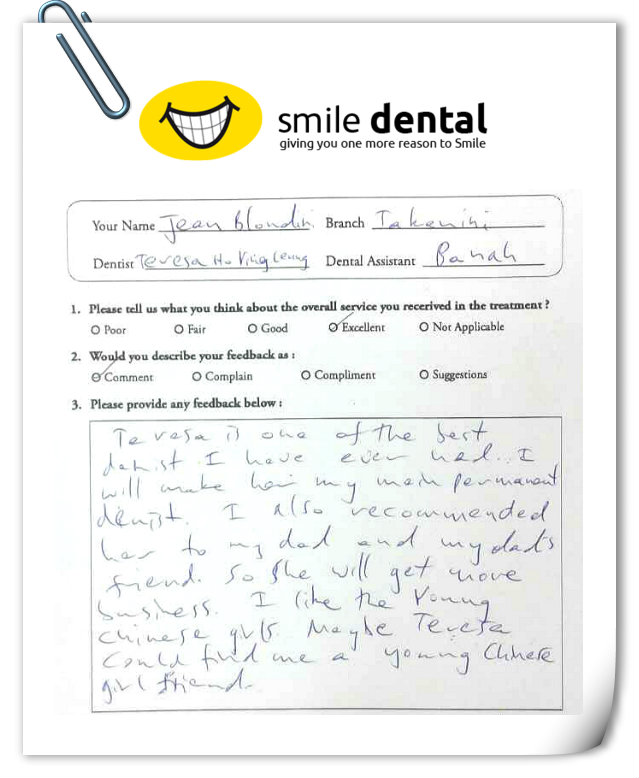 smile dental
giving you one more reason to Smile
Your Name Jean Blondin Branch Takanini
Dentist Teresa Ho Ying Leung Dental Assistant Banah
1. Please tell us what you think about the overall service you recerived in the treatment ?
Poor Fair Good Excellent Not Applicable
2. Would you describe your feedback as :
Comment Complain Compliment Suggestions
3. Please provide any feedback below :
Teresa is one of the best
dentist I have ever had. I
will make her my main permanant
dentist. I also recommended
her to my dad and my dad's
friend. So she will get more
business. I like the Young
Chinese girls. Maybe Teresa
Could find me a young Chinese
girl friend.